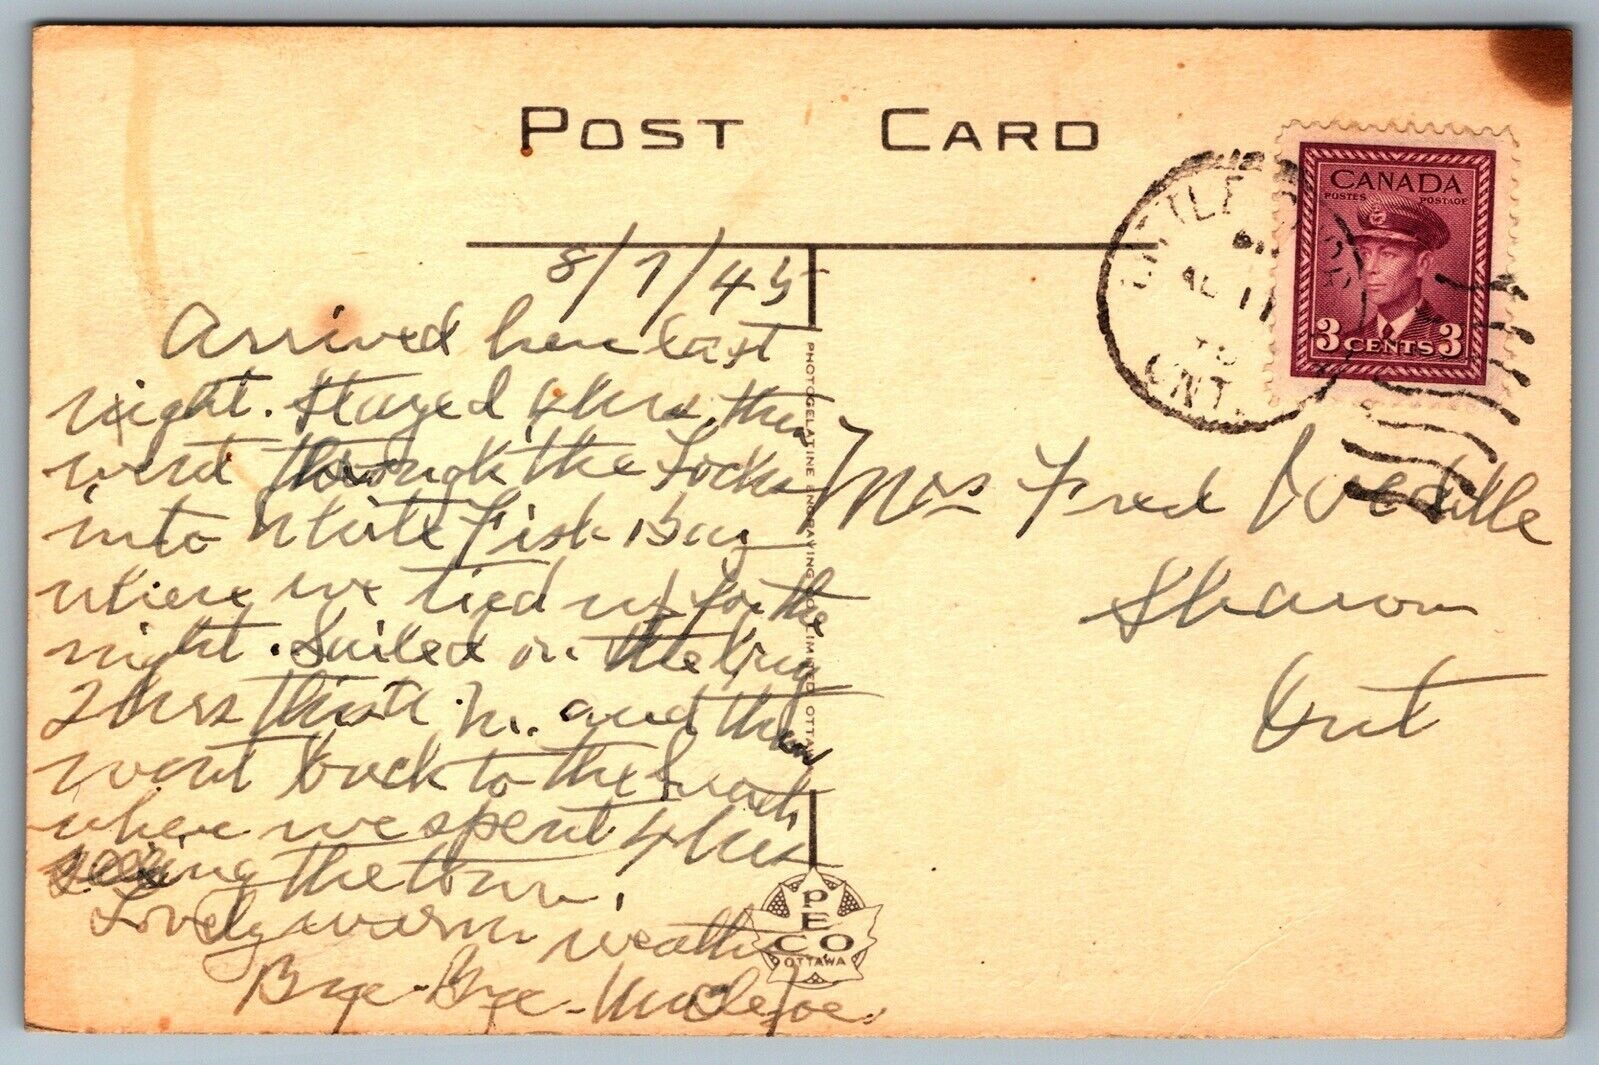 POST CARD
CANADA
POSTES POSTAGE
3 CENTS 3
LITTLE
AU 11
ONT.
8/7/45
Arrived here last
night. Stayed 4 hrs, then
went through the Locks
into White Fish Bay
where we tied up for the
night. Sailed on the bay
2 hrs this a.m. and then
went back to the
where we spent 4 hrs
seeing the town.
Lovely warm weather
Bye-Bye- Uncle Joe.
Mrs Fred Weddle
Sharon
Ont
PHOTOGELATINE ENGRAVING CO. LIMITED, OTTAWA
PECO
OTTAWA